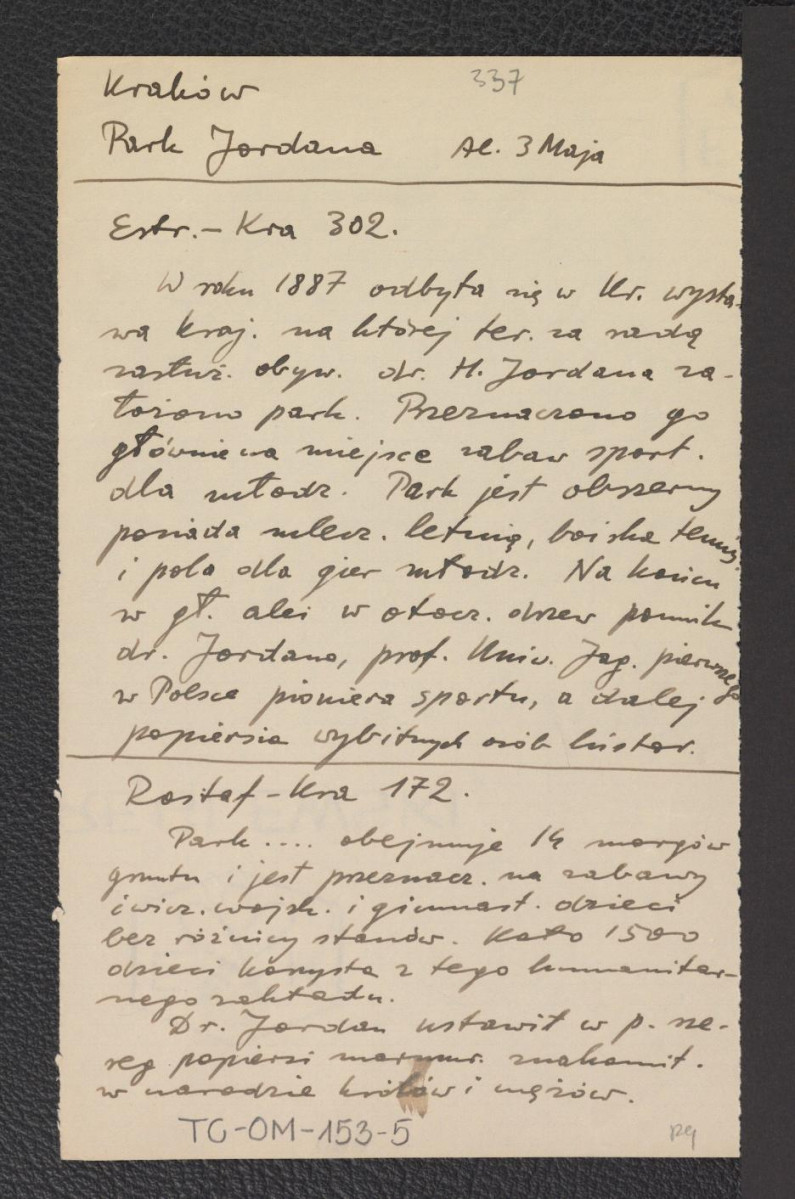 337
Kraków
Park Jordana Al. 3 Maja
Estr. - Kra 302.
W roku 1887 odbyła się w Kr. wysta-
wa kraj. na której ter. za radą
zasłuż. obyw. dr. H. Jordana za-
łożono park. Przeznaczono go
głównie na miejsce zabaw sport.
dla młodz. Park jest obszerny
posiada mlecz. letnią, boiska tenis.
i pola dla gier młodz. Na końcu
w gł. alei w otocz. drzew pomnik
dr. Jordana, prof. Uniw. Jag. pierwszego
w Polsce pioniera sportu, a dalej
popiersia wybitnych osób histor.
Rostaf - Kra 172.
Park .... obejmuje 14 morgów
gruntu i jest przeznacz. na zabawy
ćwicz. wojsk. i gimnast. dzieci
bez różnicy stanów. Koło 1500
dzieci korzysta z tego humanitar-
nego zakładu.
Dr. Jordan ustawił w p. sze-
reg popiersi marmur. znakomit.
w narodzie królów i mężów.
TG-OM-153-5